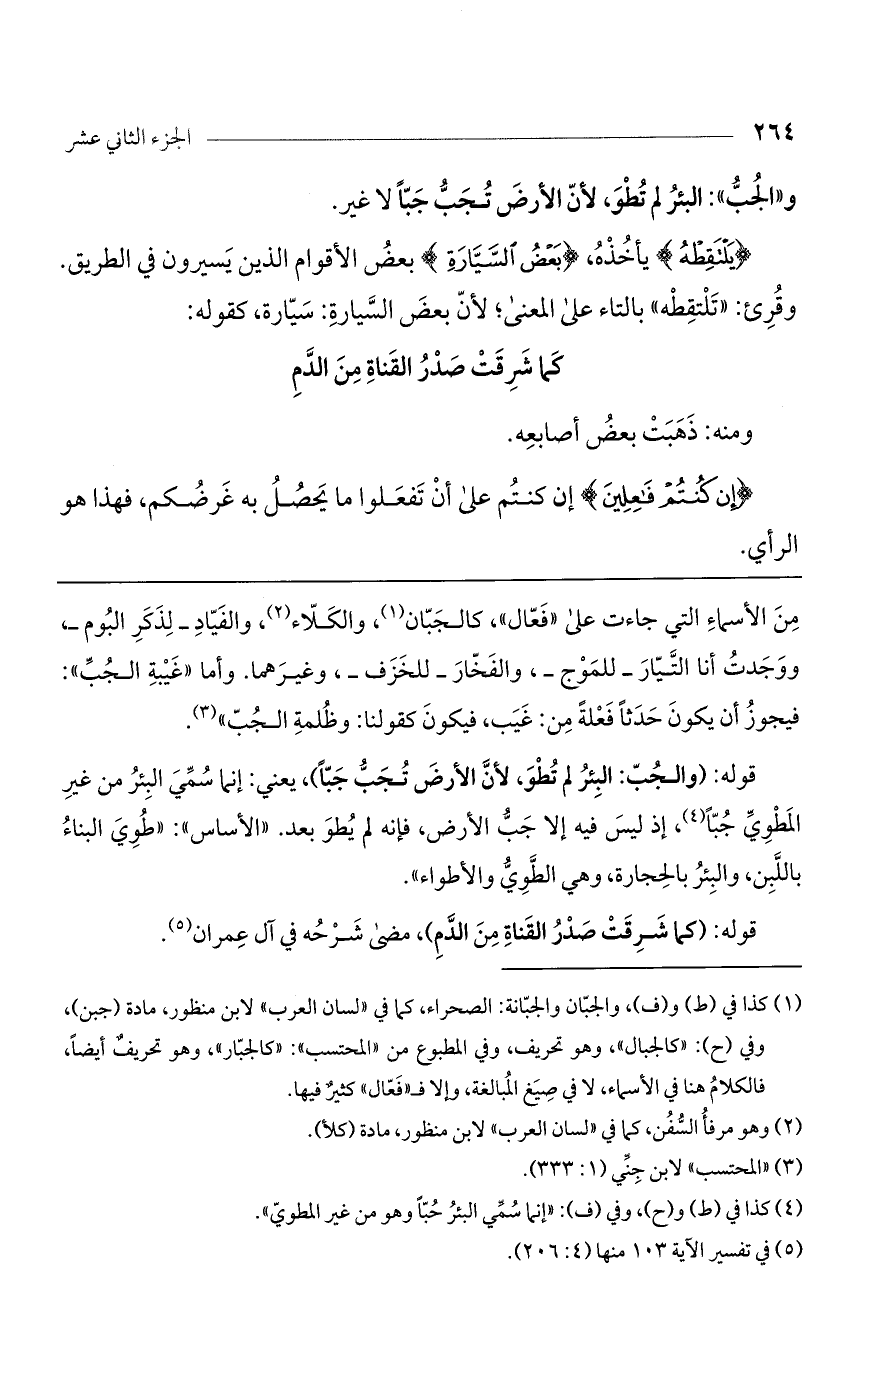 ٢٦٤ الجزء الثاني عشر
و«الجُبُّ»: البئرُ لم تُطْوَ، لأنّ الأرضَ تُـجَبُّ جَبّاً لا غير.
﴿يَلْتَقِطْهُ﴾ يأخُذْهُ، ﴿بَعْضُ ٱلسَّيَّارَةِ﴾ بعضُ الأقوام الذين يَسيرون في الطريق.
وقُرِئ: «تَلْتقِطْه» بالتاء علىٰ المعنىٰ؛ لأنّ بعضَ السَّيارةِ: سَيّارة، كقوله:
كَما شَرِقَتْ صَدْرُ القَناةِ مِنَ الدَّمِ
ومنه: ذَهَبَتْ بعضُ أصابعِه.
﴿إِن كُنتُمْ فَٰعِلِينَ﴾ إن كنـتُم علىٰ أنْ تَفعَـلوا ما يَحصُـلُ به غَرضُـكم، فهذا هو
الرأي.
مِنَ الأسماءِ التي جاءت علىٰ «فَعّال»، كالـجَبّان(١)، والكَـلّاء(٢)، والفَيّادِ ـ لِذَكَرِ البُوم ـ،
ووَجَدتُ أنا التَّـيّارَ ـ للمَوْج ـ ، والفَخّارَ ـ للخَزَف ـ ، وغيـرَهما. وأما «غَيْبةِ الـجُبِّ»:
فيجوزُ أن يكونَ حَدَثاً فَعْلةً مِن: غَيَب، فيكونَ كقولنا: وظُلمةِ الـجُبّ»(٣).
قوله: (والـجُبّ: البِئرُ لم تُطْوَ، لأنَّ الأرضَ تُـجَبُّ جَبّاً)، يعني: إنما سُمِّيَ البِئرُ من غيرِ
المَطْوِيِّ جُبّاً(٤)، إذ ليسَ فيه إلا جَبُّ الأرض، فإنه لم يُطوَ بعد. «الأساس»: «طُوِيَ البناءُ
باللَّبِن، والبِئرُ بالحِجارة، وهي الطَّوِيُّ والأطواء».
قوله: (كما شَـرِقَتْ صَدْرُ القَناةِ مِنَ الدَّمِ)، مضىٰ شَـرْحُه في آل عِمران(٥).
(١) كذا في (ط) و(ف)، والجَبّان والجَبّانة: الصحراء، كما في «لسان العرب» لابن منظور، مادة (جبن)،
وفي (ح): «كالجبال»، وهو تحريف، وفي المطبوع من «المحتسب»: «كالجبّار»، وهو تحريفٌ أيضاً،
فالكلامُ هنا في الأسماء، لا في صِيَغِ المُبالغة، وإلا فـ«فَعّال» كثيرٌ فيها.
(٢) وهو مرفأُ السُّفُن، كما في «لسان العرب» لابن منظور، مادة (كلأ).
(٣) «المحتسب» لابن جِنِّي (١: ٣٣٣).
(٤) كذا في (ط) و(ح)، وفي (ف): «إنما سُمِّي البئرُ جُبّاً وهو من غير المطويّ».
(٥) في تفسير الآية ١٠٣ منها (٤: ٢٠٦).